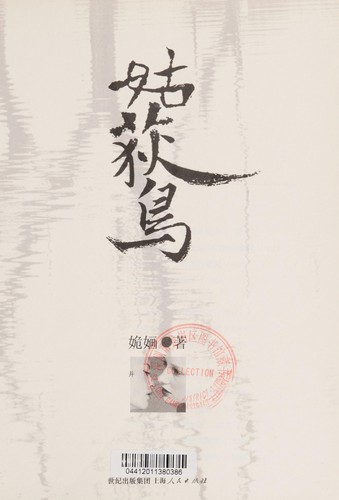 姑荻鸟
姽婳●著
COLLECTION
04412011380386
世纪出版集团 上海人民出版社